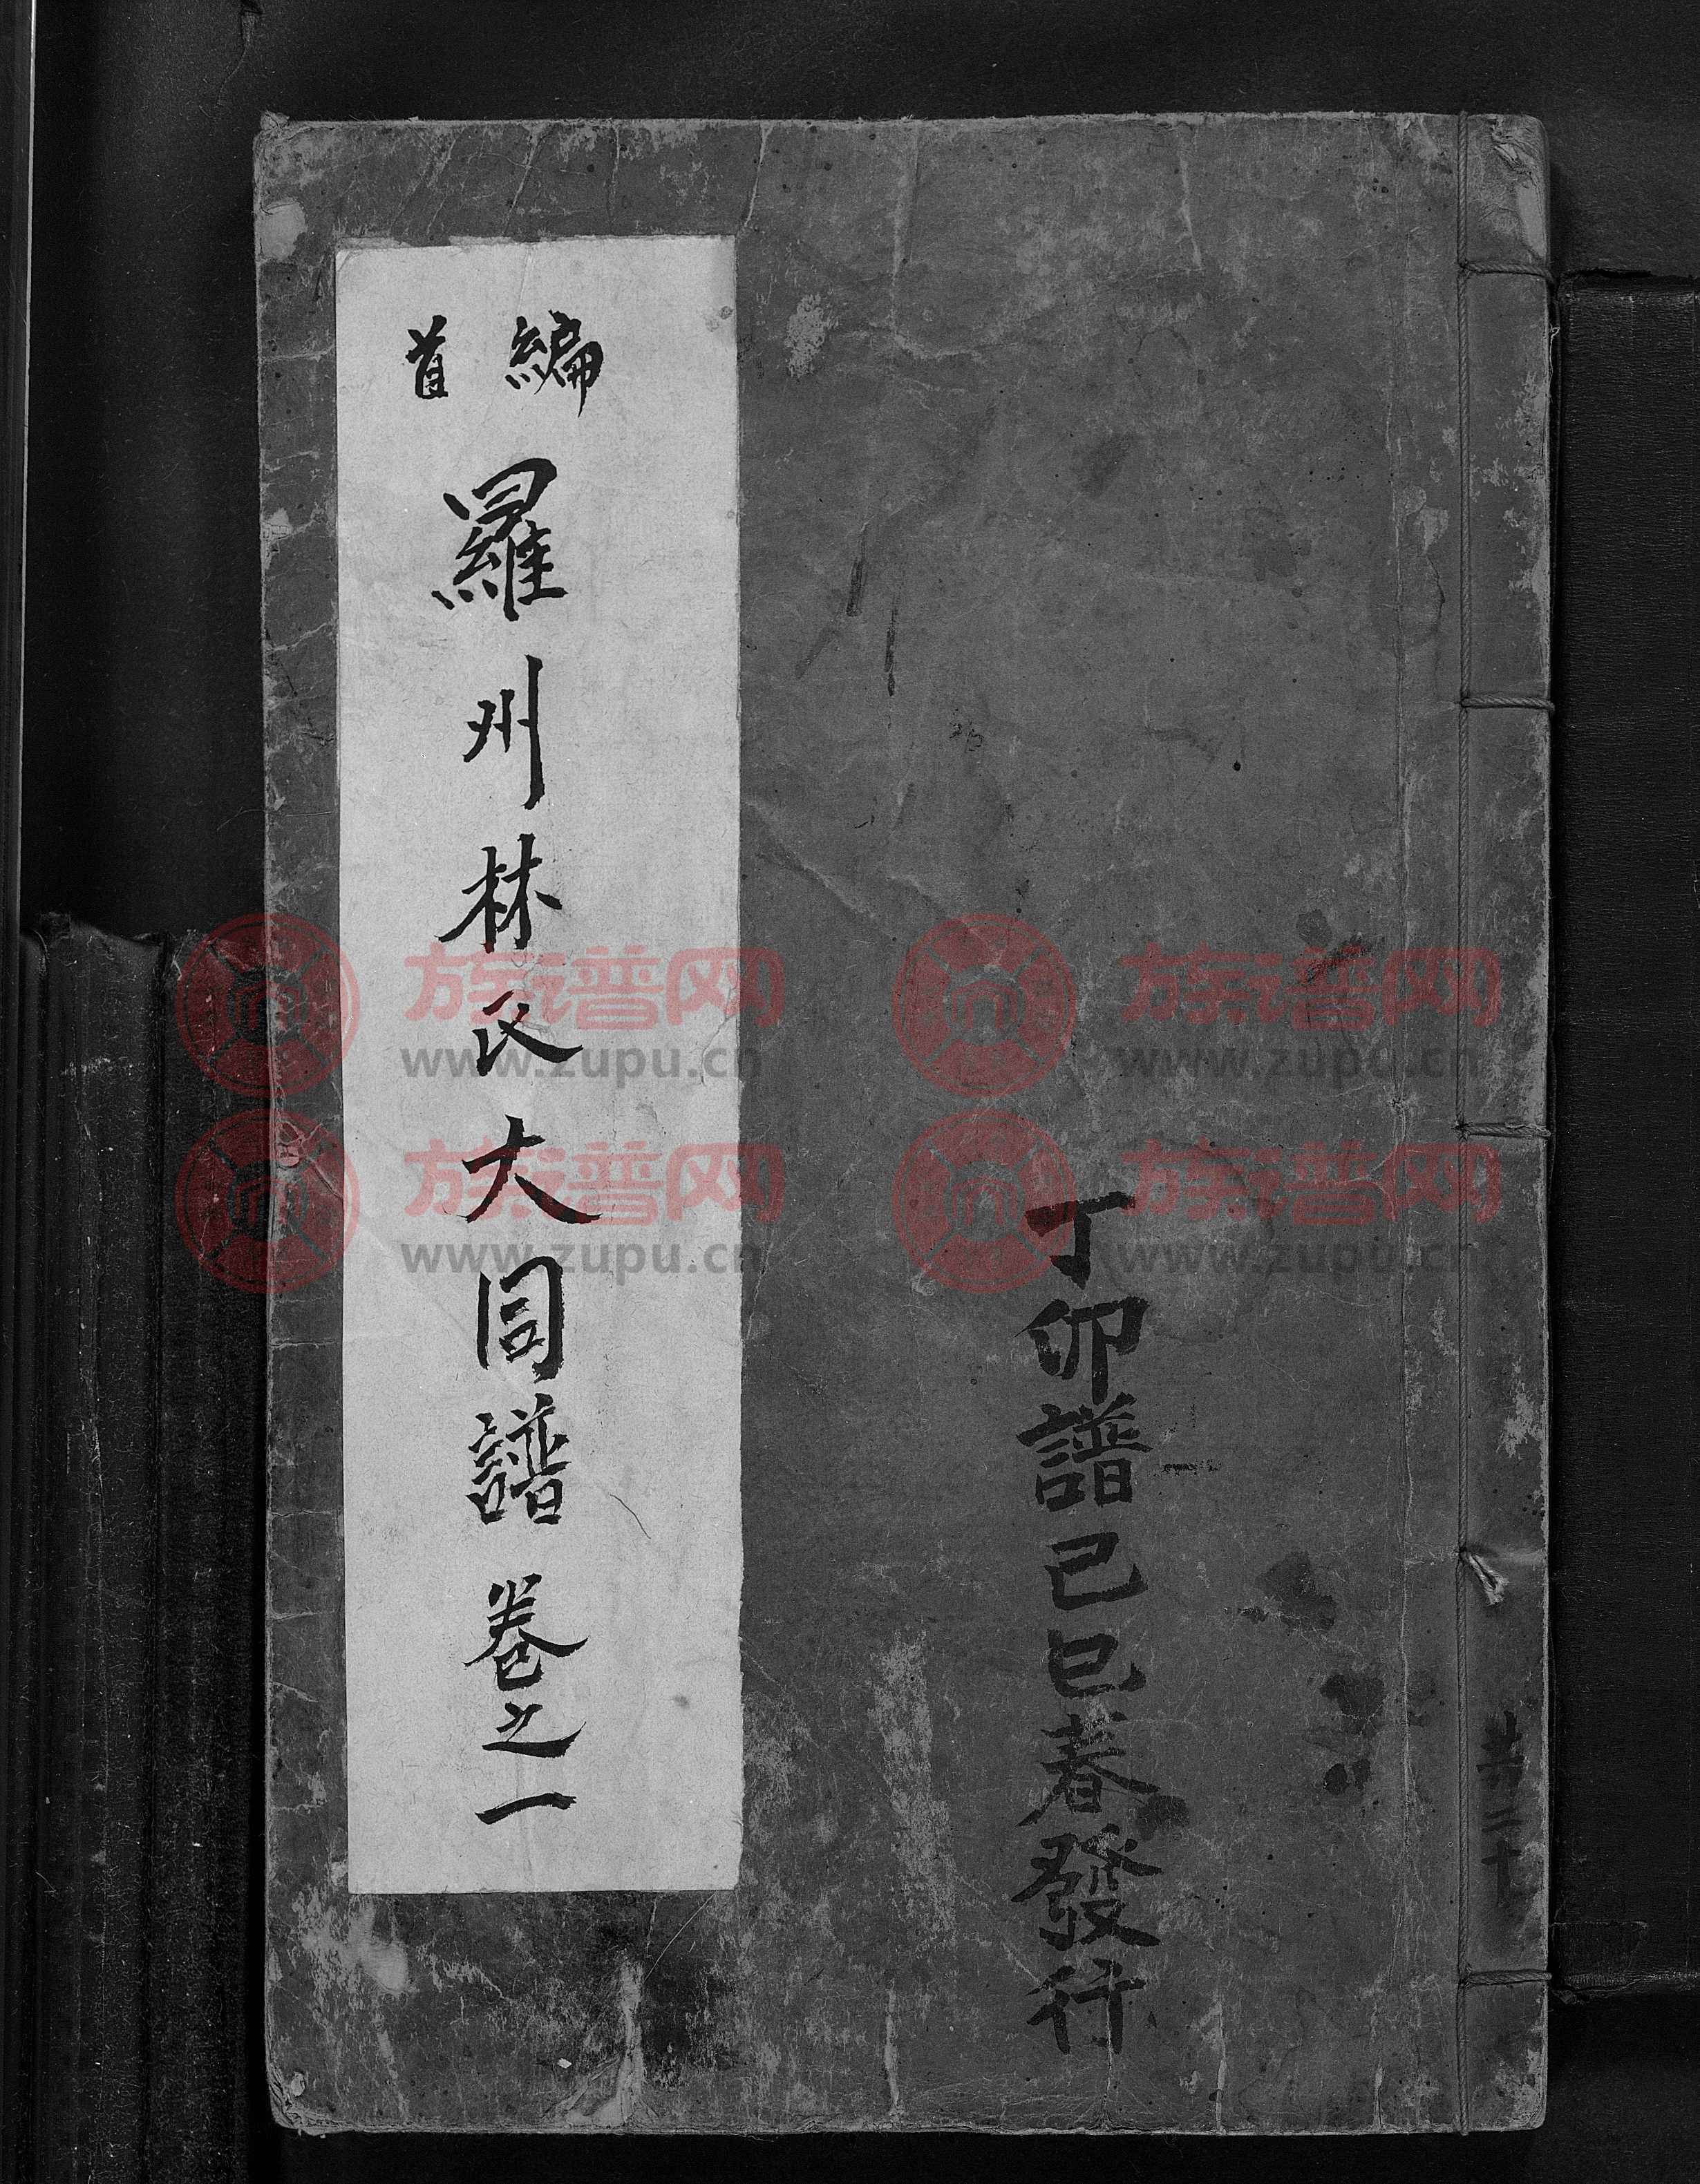 編首
羅州林氏大同譜 卷之一
丁卯譜己巳春發行
共二十
族谱网
www.zupu.cn
族谱网
www.zupu.cn
族谱网
www.zupu.cn
族谱网
www.zupu.cn